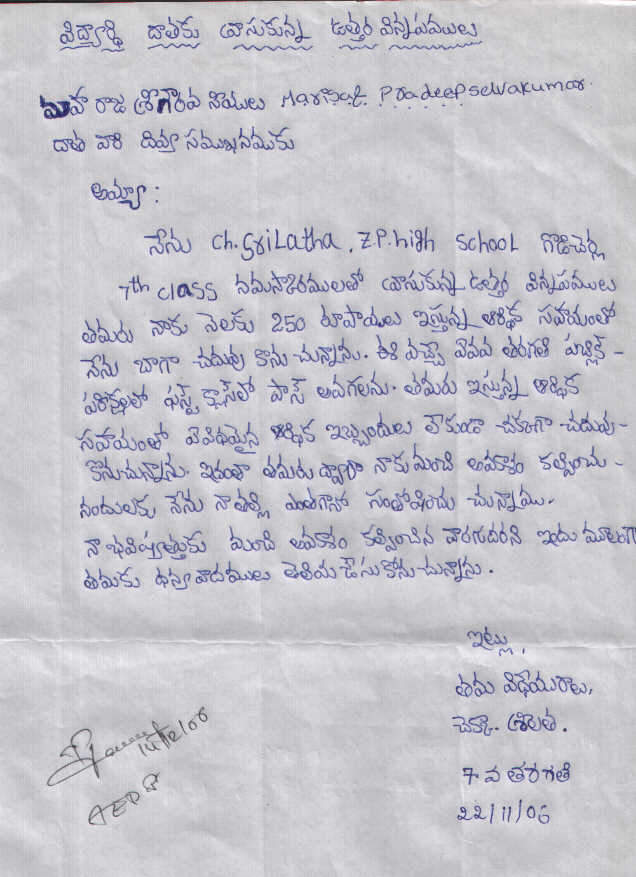 విద్యార్థి దాతకు వ్రాసుకున్న ఉత్తర విన్నపములు
మహా రాజ శ్రీ గౌరవ నీయులు Pradeepselvakumar.
దాత వారి దివ్య సముఖనముకు
అయ్యా :
నేను Ch. Srilatha, Z.P. high school గొడిచెర్ల
7th class నమస్కారములతో వ్రాసుకున్న ఉత్తర విన్నపములు
తమరు నాకు నెలకు 250 రూపాయలు ఇస్తున్న ఆర్థిక సహాయంతో
నేను బాగా చదువు కొను చున్నాను. ఈ వచ్చే తరగతి పబ్లిక్ -
పరీక్షలలో ఫస్ట్ క్లాస్‌లో పాస్ అవగలను. తమరు ఇస్తున్న ఆర్థిక
సహాయంతో ఆర్థిక ఇబ్బందులు లేకుండా చక్కగా చదువు-
కొనుచున్నాను. ఇదంతా తమరు ద్వారా నాకు మంచి అవకాశం కల్పించు -
నందులకు నేను నా తల్లి ఎంతగానో సంతోషించు చున్నాము.
నా భవిష్యత్తుకు మంచి అవకాశం కల్పించిన ఇందు మూలంగా
తమకు ధన్యవాదములు తెలియ చేసుకోను చున్నాను.
ఇట్లు,
తమ విధేయురాలు,
శ్రీలత.
7 వ తరగతి
22/11/06